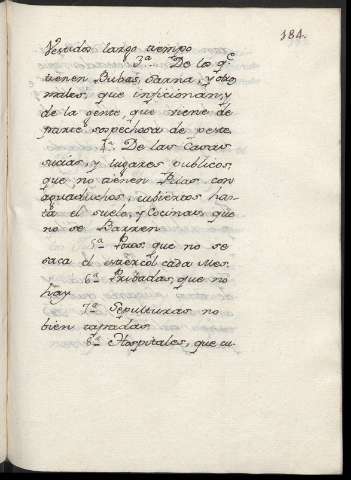 184.
Vestidos largo tiempo
3ª De los q.ᵉ
tienen Bubas, sarna, y otros
males, que inficionan, y
de la gente, que viene de
parte sospechosa de peste.
4ª De las Casas
sucias, y lugares publicos,
que no tienen Pilas con
aguaduchos, cubiertos has-
ta el suelo, y Cocinas, que
no se Barren
5ª Pozos que no se
saca el estiercol cada Mes.
6ª Pribadas, que no
hay
7ª Sepulturas no
bien tapadas
8ª Hospitales, que cu-